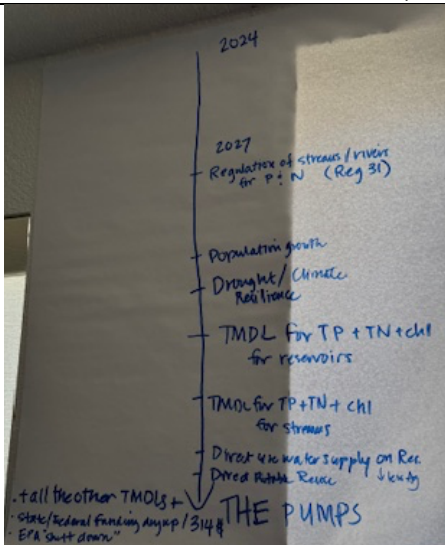 2024
2027
Regulation of streams/rivers
for P & N (Reg 31)
Population growth
Drought/Climate
Resilience
TMDL for TP + TN + chl
for reservoirs
TMDL for TP + TN + chl
for streams
Direct use water supply on Rec
Direct Potable Reuse
+ all the other TMDLs +
THE PUMPS
· State/Federal funding dry up / 314
· EPA "shut down"